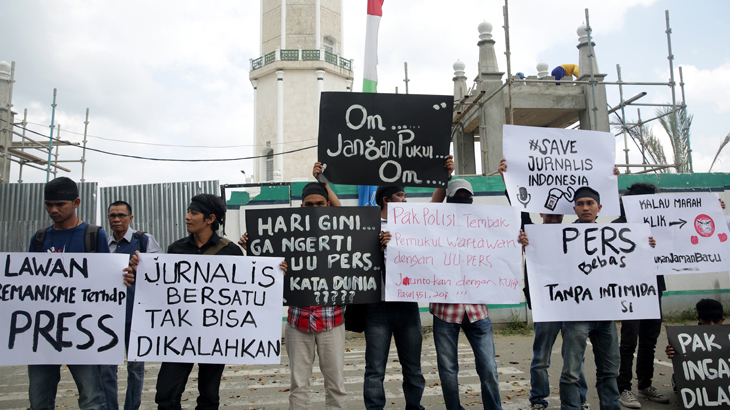 Om...
Jangan... Pukul...
Om...
#SAVE
JURNALIS
INDONESIA
KALAU MARAH
KLIK
JAMAN BATU
LAWAN
PREMANISME TERHDP
PRESS
JURNALIS
BERSATU
TAK BISA
DIKALAHKAN
HARI GINI...
GA NGERTI
UU PERS..
KATA DUNIA
??????
PAK POLISI.. Tembak
Pemukul Wartawan
dengan UU PERS
Juntokan dengan KUHP
Pasal 351, 209 ...!!!
PERS
Bebas
TANPA INTIMIDA
SI
PAK
INGAT
DILA